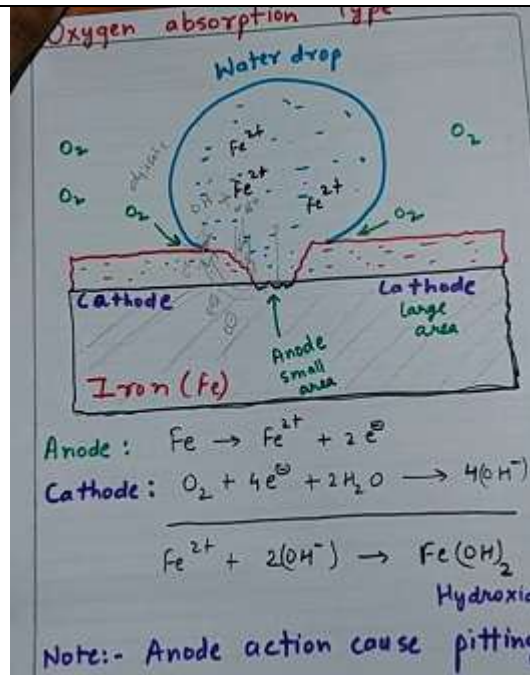 Oxygen absorption Type
Water drop
O₂
O₂
O₂
O₂
O₂
Fe²⁺
Fe²⁺
Fe²⁺
Cathode
Cathode
large
area
Anode
small
area
Iron (Fe)
Anode : Fe → Fe²⁺ + 2e⊖
Cathode : O₂ + 4e⊖ + 2H₂O → 4(OH⁻)
Fe²⁺ + 2(OH⁻) → Fe(OH)₂
Hydroxid
Note:- Anode action cause pitting